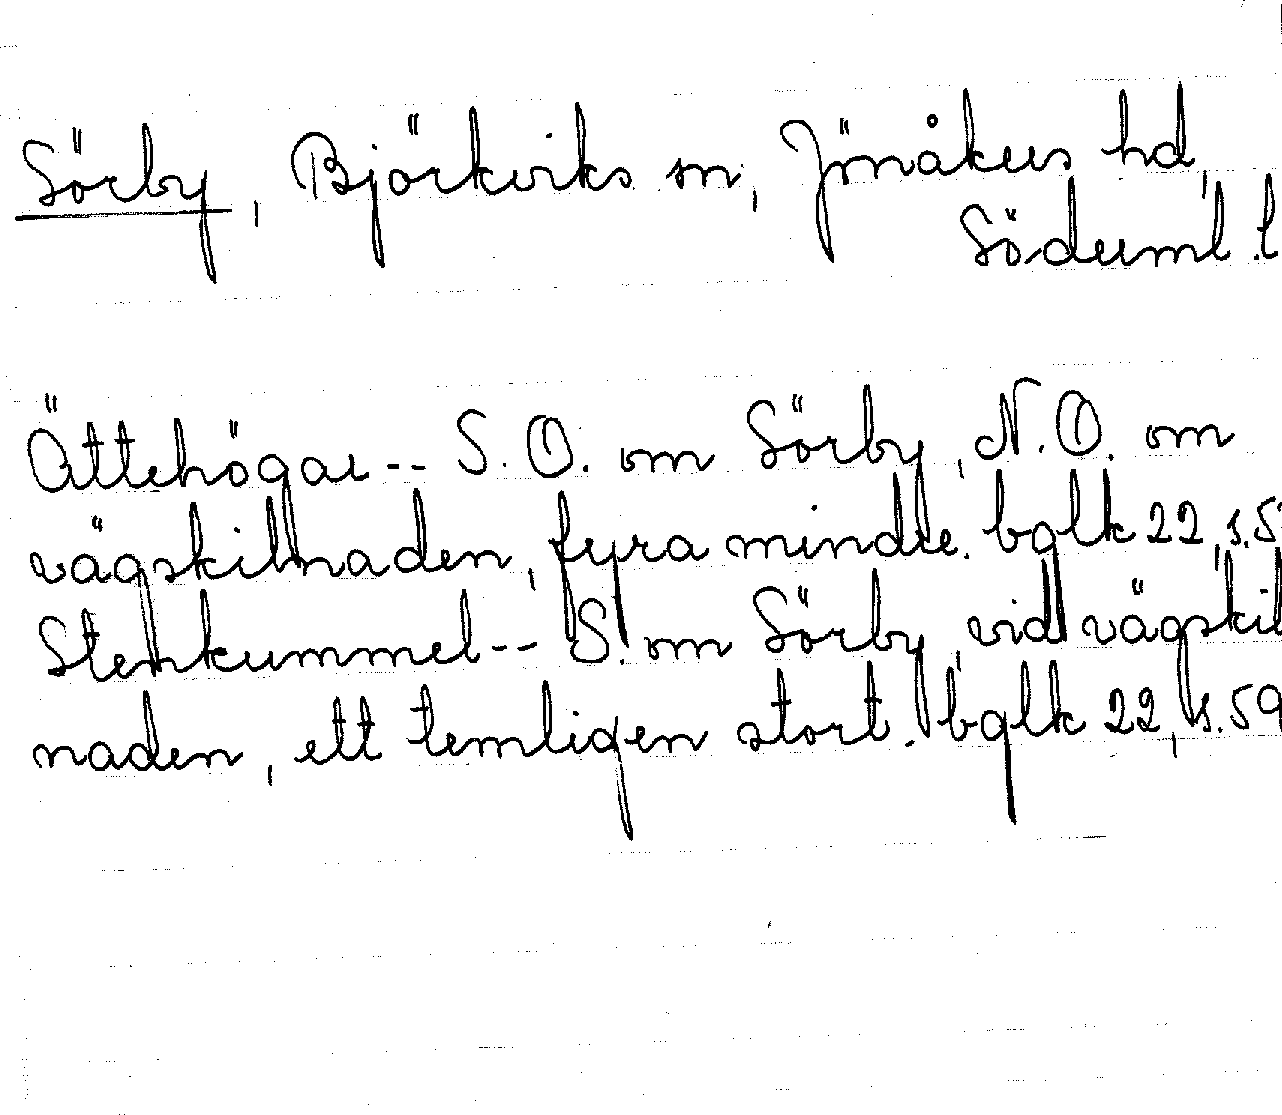 Sörby, Björkviks sn, Jönåkers hd,
Söderml. l
Ättehögar -- S.O. om Sörby, N.O. om
vägskilnaden, fyra mindre. bglk 22, s.5
Stenkummel -- S. om Sörby, vid vägskil
naden, ett temligen stort. bglk 22, s.59